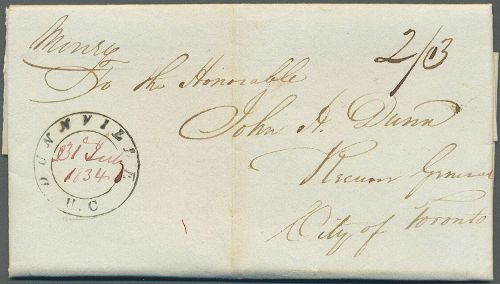 Money
2/3
To the Honorable
John H. Dunn
Receiver General
City of Toronto
DUNNVILLE
31st July
1834
U.C